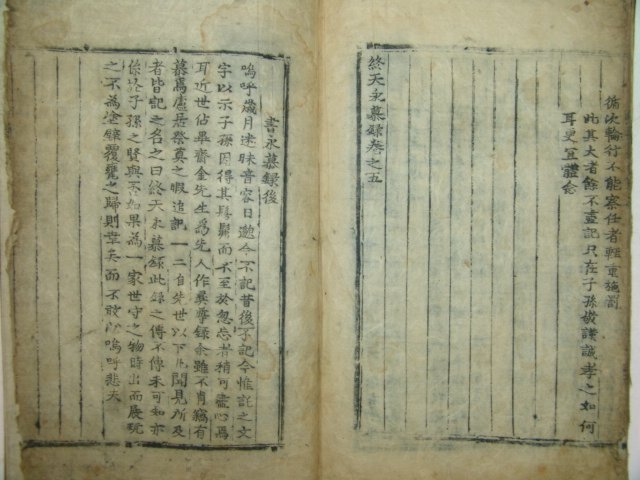 循次輪行不能察任者輕重施罰
此其大者餘不盡記只在子孫㪅謹誠孝之如何
耳更宜體念
終天永慕錄卷之五
書永慕錄後
嗚呼歲月迷昧音容日邈今不記昔後不記今惟託之文
字以示子孫因得其髣髴而不至於忽忘者稍可盡心焉
耳近世佔畢齋金先生爲先人作彛尊錄余雖不肖竊有
慕焉廬居祭奠之暇追記一二自先世以下凡聞見所及
者皆記之名之曰終天永慕錄此錄之傳不傳未可知亦
係於子孫之賢與否如果爲一家世守之物時出而展玩
之不爲塗鴉覆甕之歸則幸矣而不敢必嗚呼悲夫